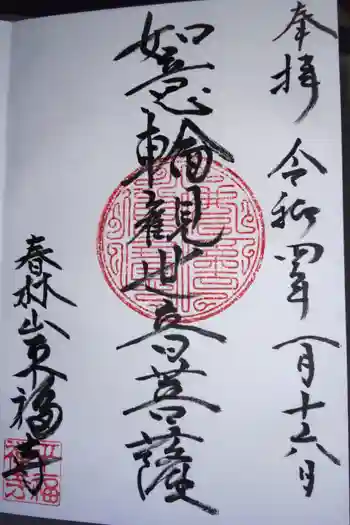 奉拝 令和四年一月十六日
如意輪観世音菩薩
春林山東福寺